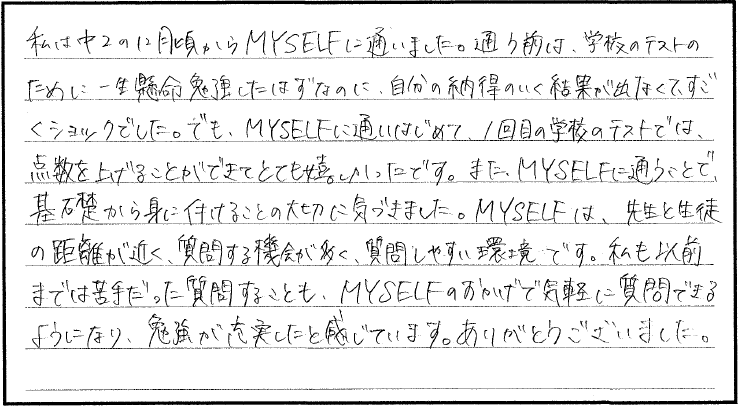 私は中2の12月頃からMYSELFに通いました。通う前は、学校のテストの
ために一生懸命勉強したはずなのに、自分の納得のいく結果が出なくて、すご
くショックでした。でも、MYSELFに通いはじめて、1回目の学校のテストでは、
点数を上げることができてとても嬉しかったです。また、MYSELFに通うことで、
基礎から身に付けることの大切に気づきました。MYSELFは、先生と生徒
の距離が近く、質問する機会が多く、質問しやすい環境です。私も以前
までは苦手だった質問することも、MYSELFのおかげで気軽に質問できる
ようになり、勉強が充実したと感じています。ありがとうございました。